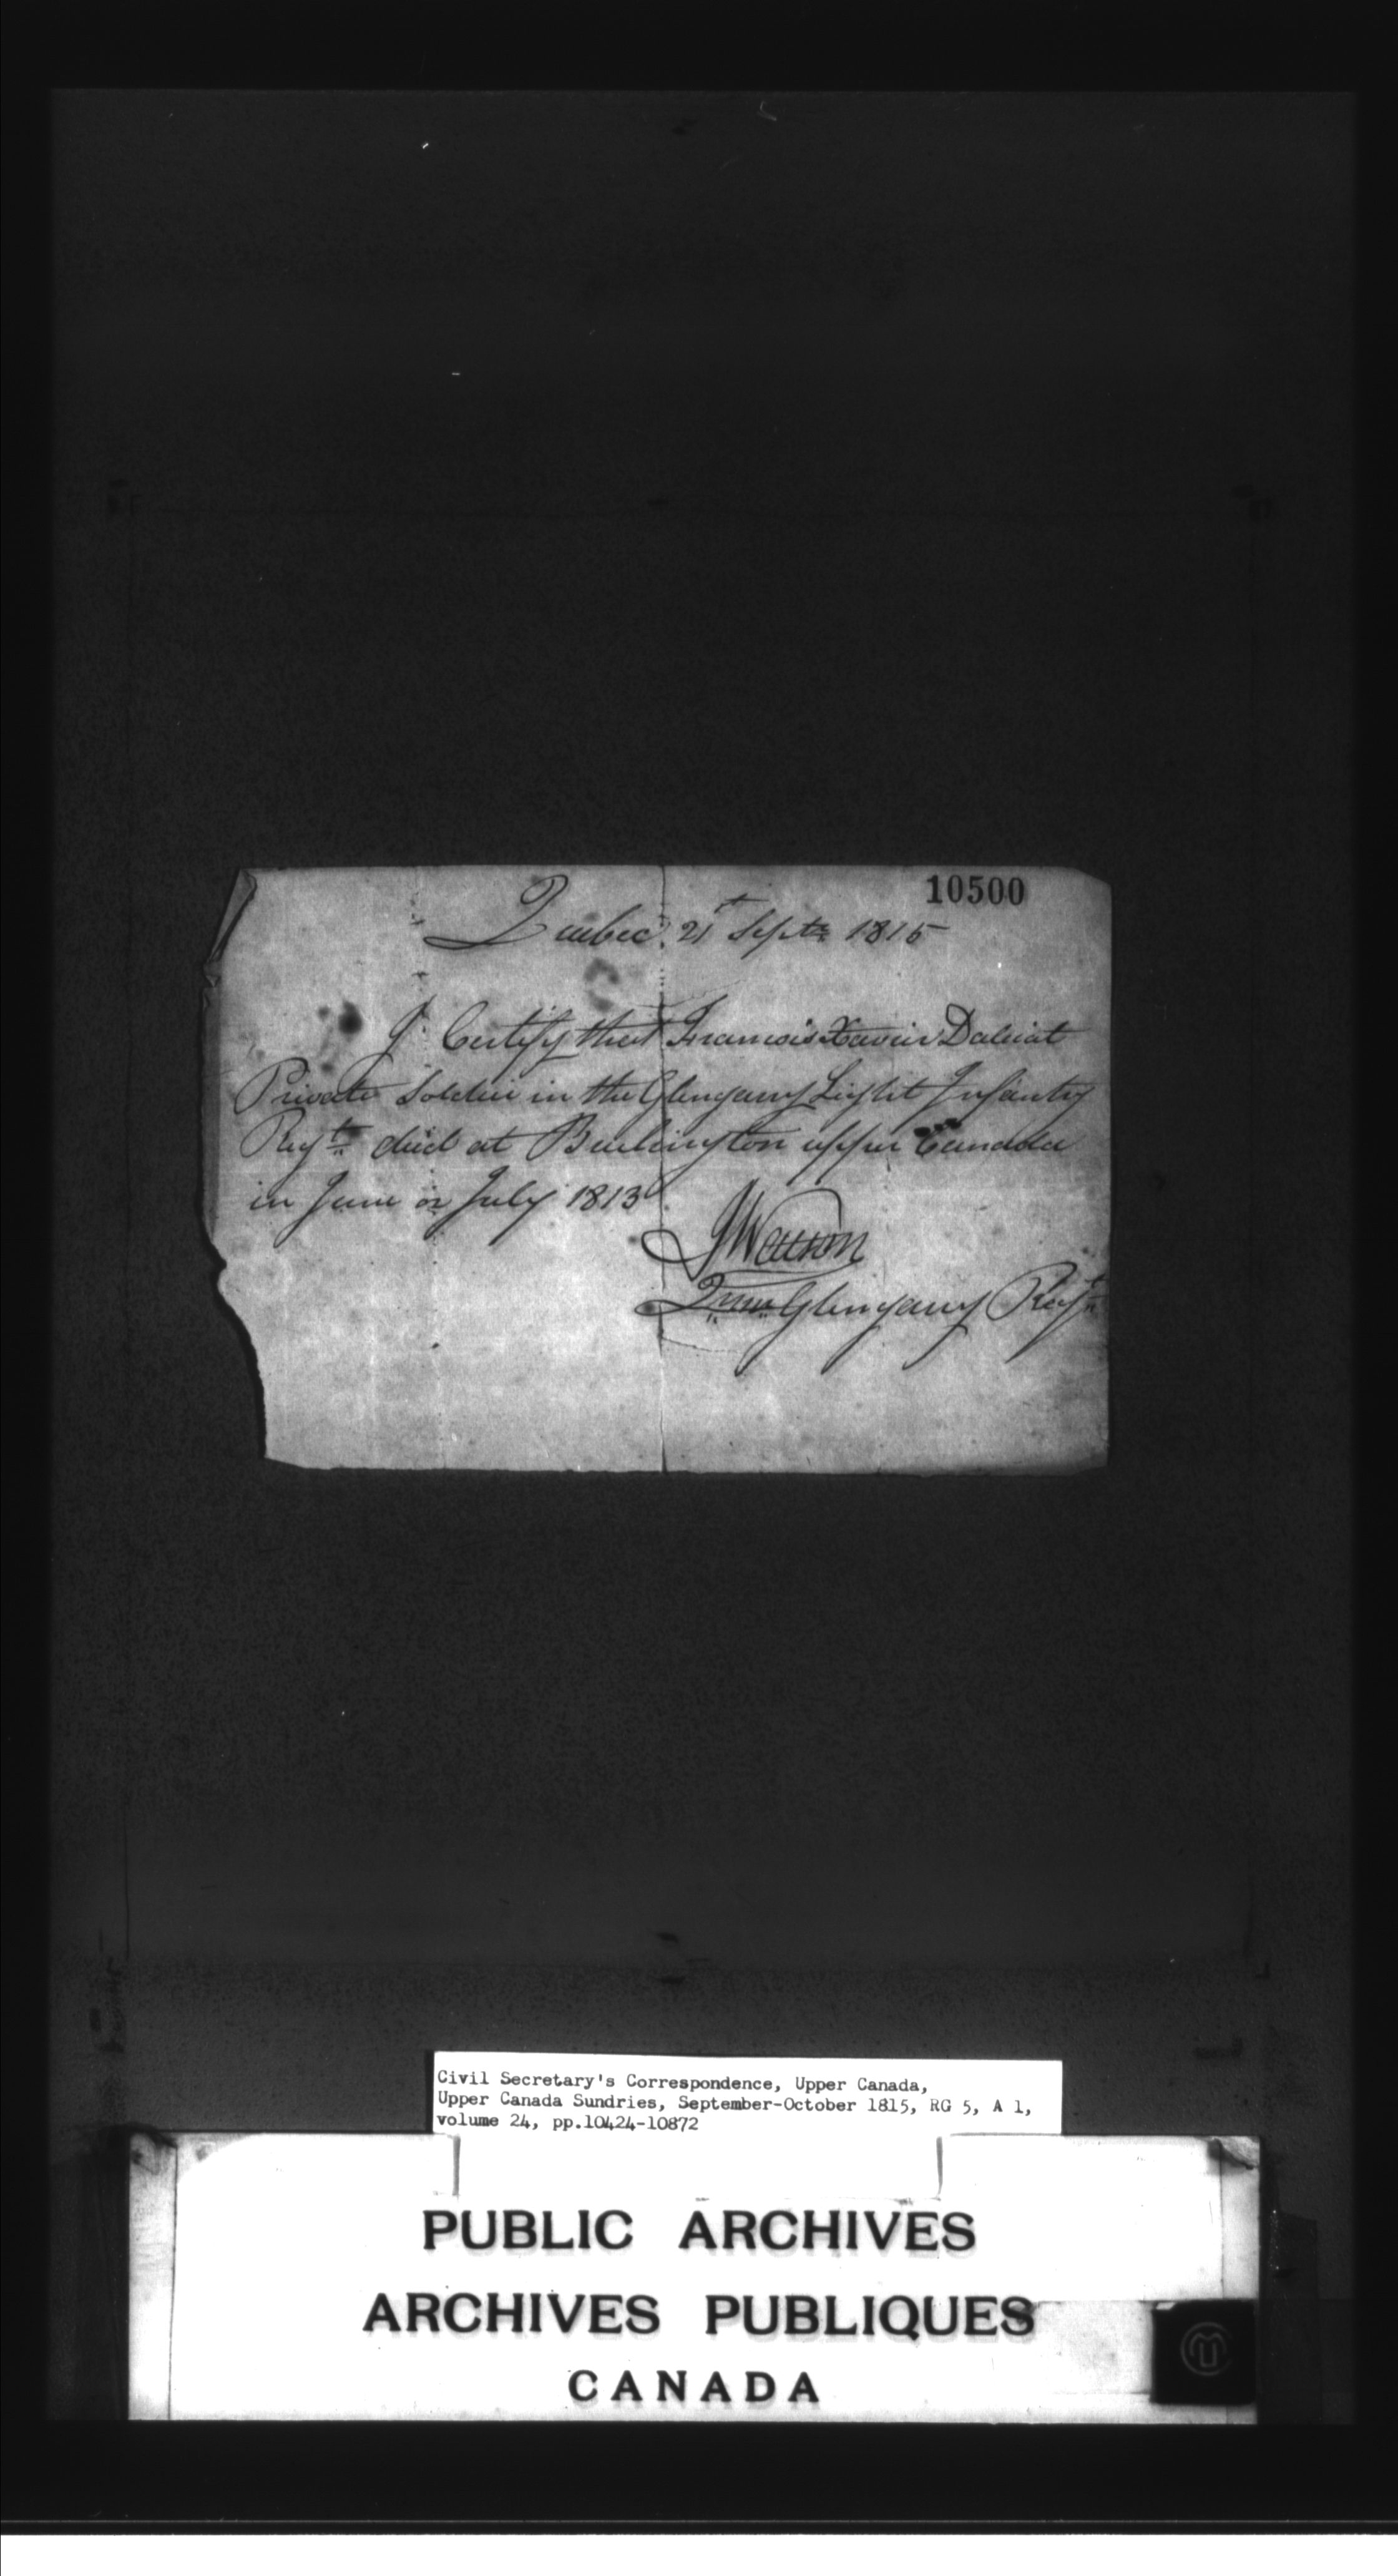 10500
Quebec 21st Septr 1815
I Certify that Francois Xavier Daliat
Private Soldier in the Glengarry Light Infantry
Regt died at Burlington upper Canada
in June or July 1813
J Watson
Qr Mr Glengarry Regt
Civil Secretary's Correspondence, Upper Canada,
Upper Canada Sundries, September-October 1815, RG 5, A 1,
volume 24, pp.10424-10872
PUBLIC ARCHIVES
ARCHIVES PUBLIQUES
CANADA